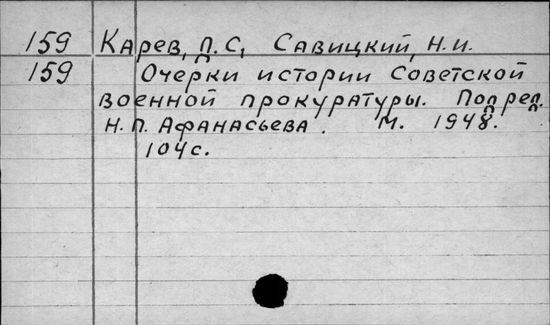 159 Карев, Д.С, Савицкий, Н.И.
159 Очерки истории Советской
военной прокуратуры. Под ред.
Н.П. Афанасьева. М. 1948.
104с.